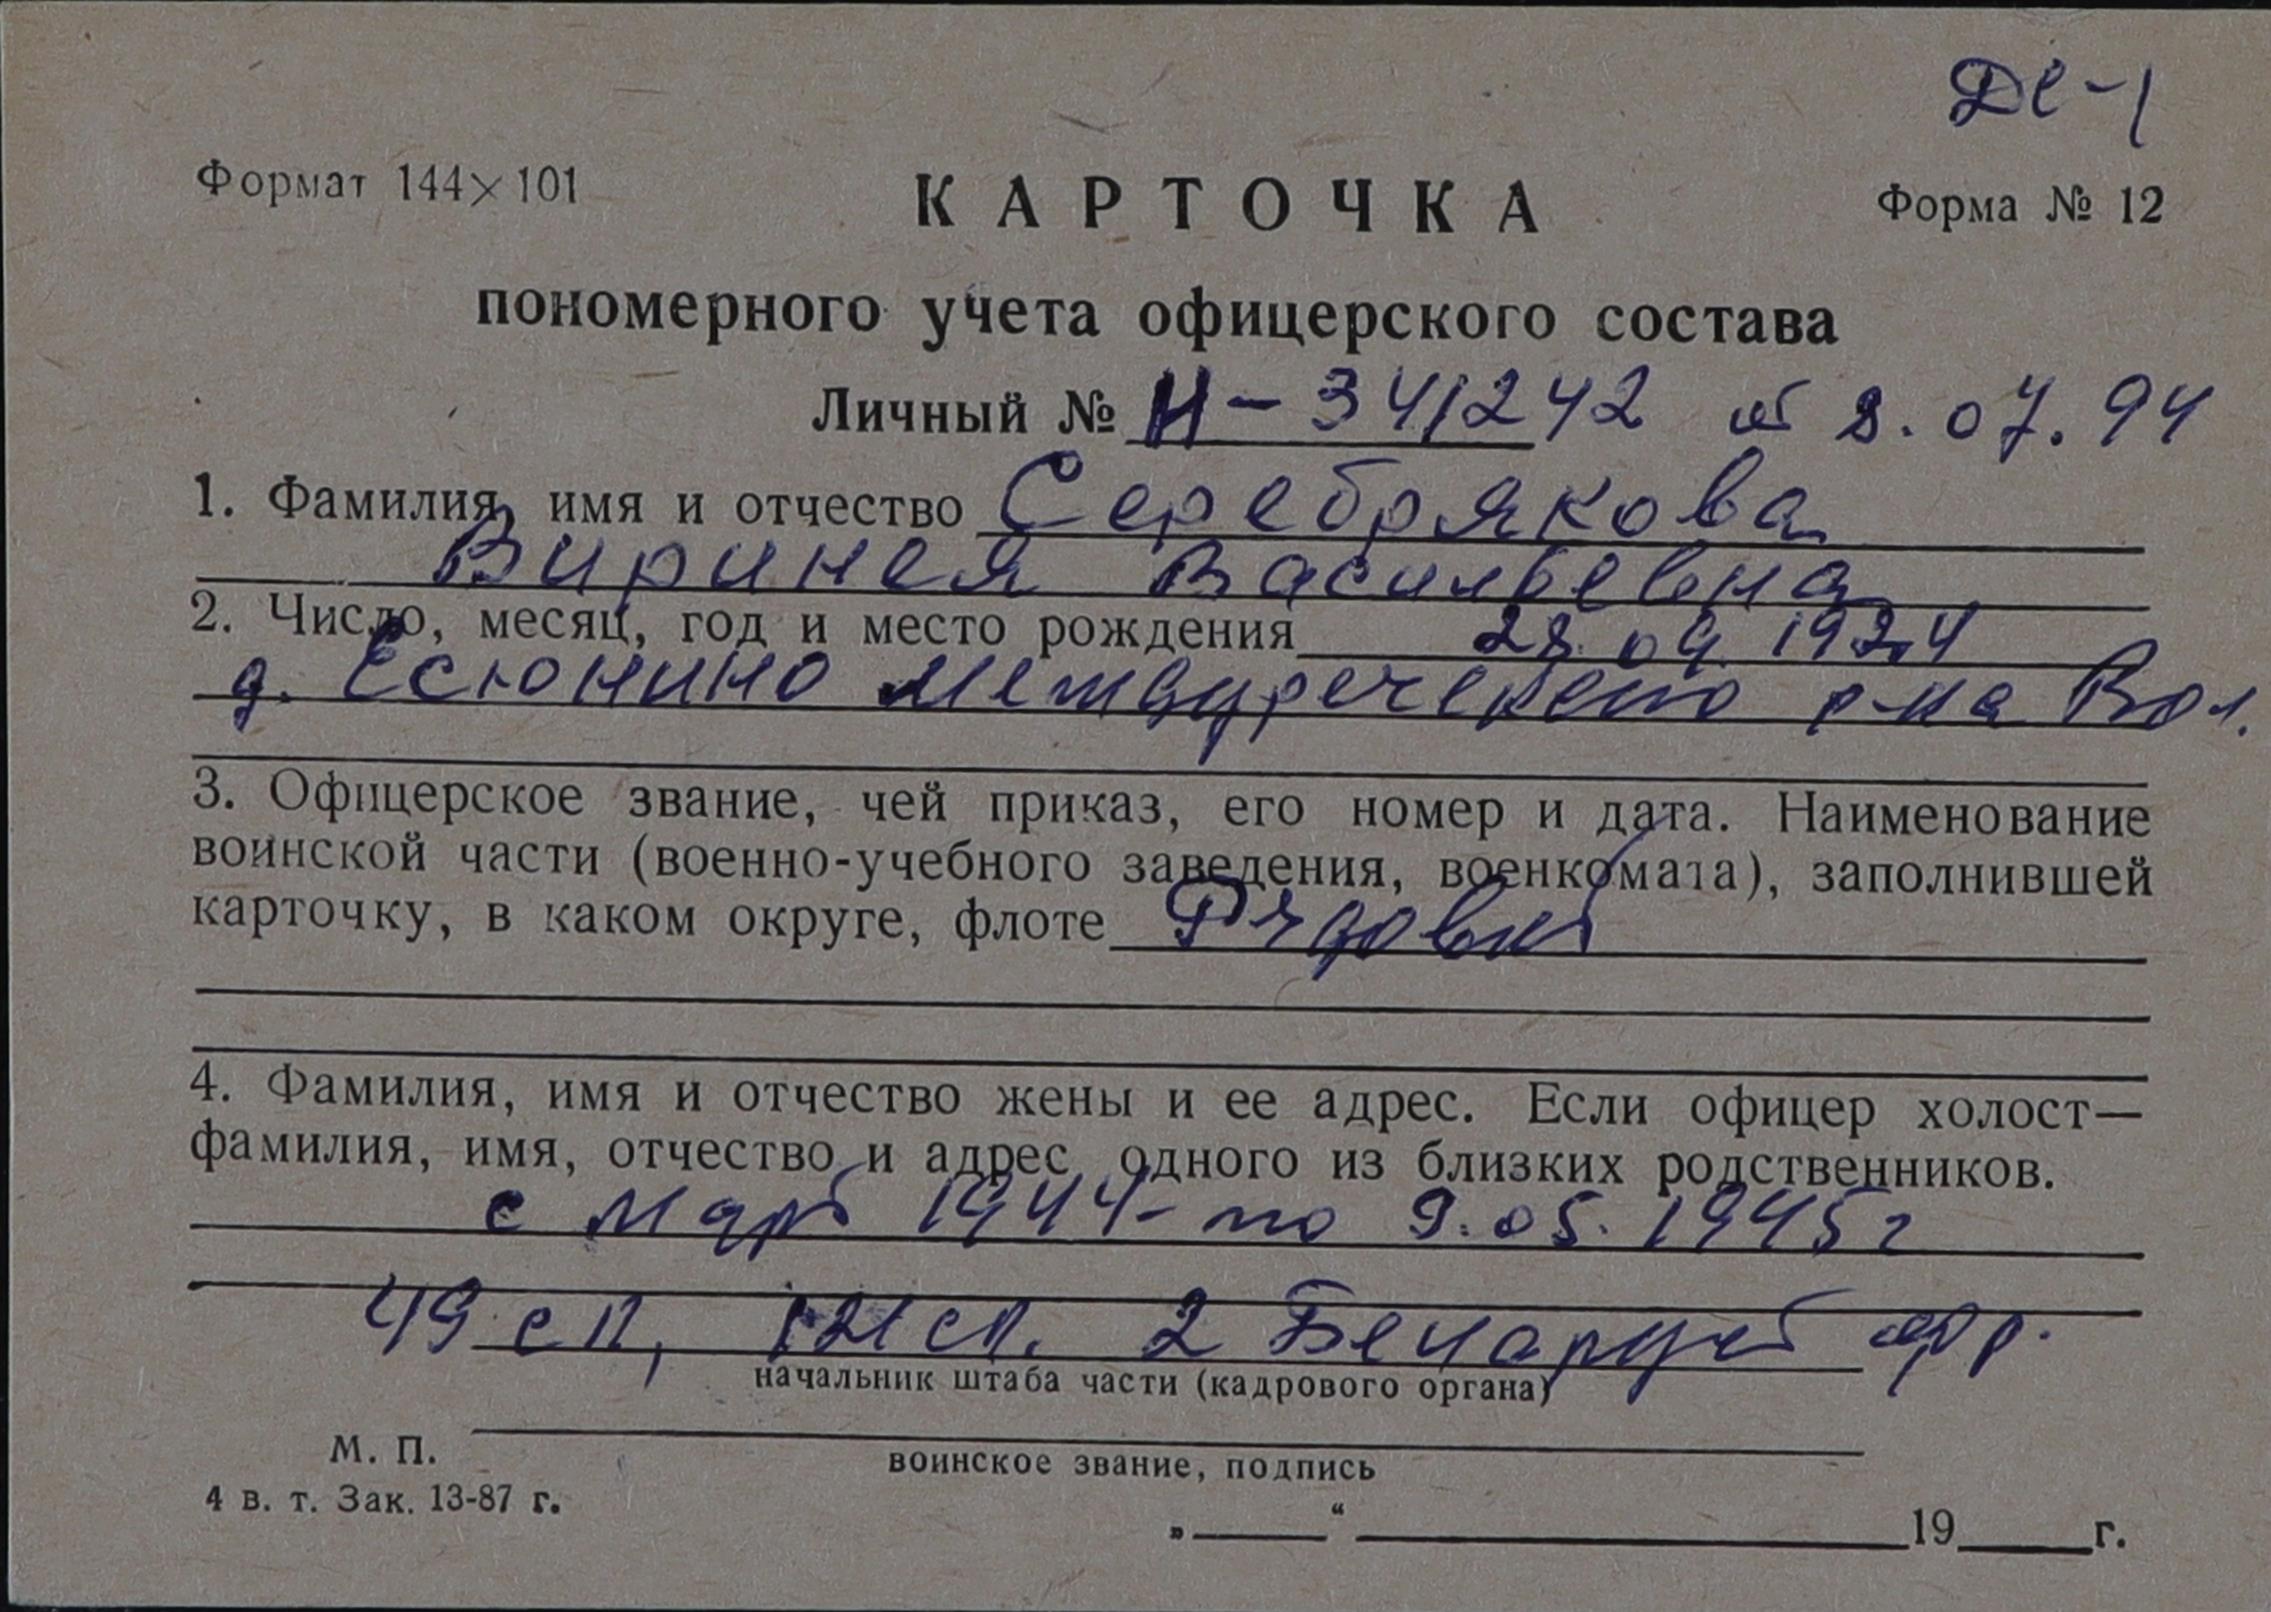 ДС-1
Формат 144×101
КАРТОЧКА
Форма № 12
пономерного учета офицерского состава
Личный № Н-341242 от 8.07.94
1. Фамилия, имя и отчество Серебрякова
Виринея Васильевна
2. Число, месяц, год и место рождения 28.09.1924
д. Есюнино Междуреченско р-на Вол.
3. Офицерское звание, чей приказ, его номер и дата. Наименование
воинской части (военно-учебного заведения, военкомата), заполнившей
карточку, в каком округе, флоте Рядовой
4. Фамилия, имя и отчество жены и ее адрес. Если офицер холост—
фамилия, имя, отчество и адрес одного из близких родственников.
с март 1944- по 9.05.1945г
49 сп, 121 сп. 2 Беларуск фр.
начальник штаба части (кадрового органа)
М. П.
воинское звание, подпись
4 в. т. Зак. 13-87 г.
„____“ ________ 19___г.